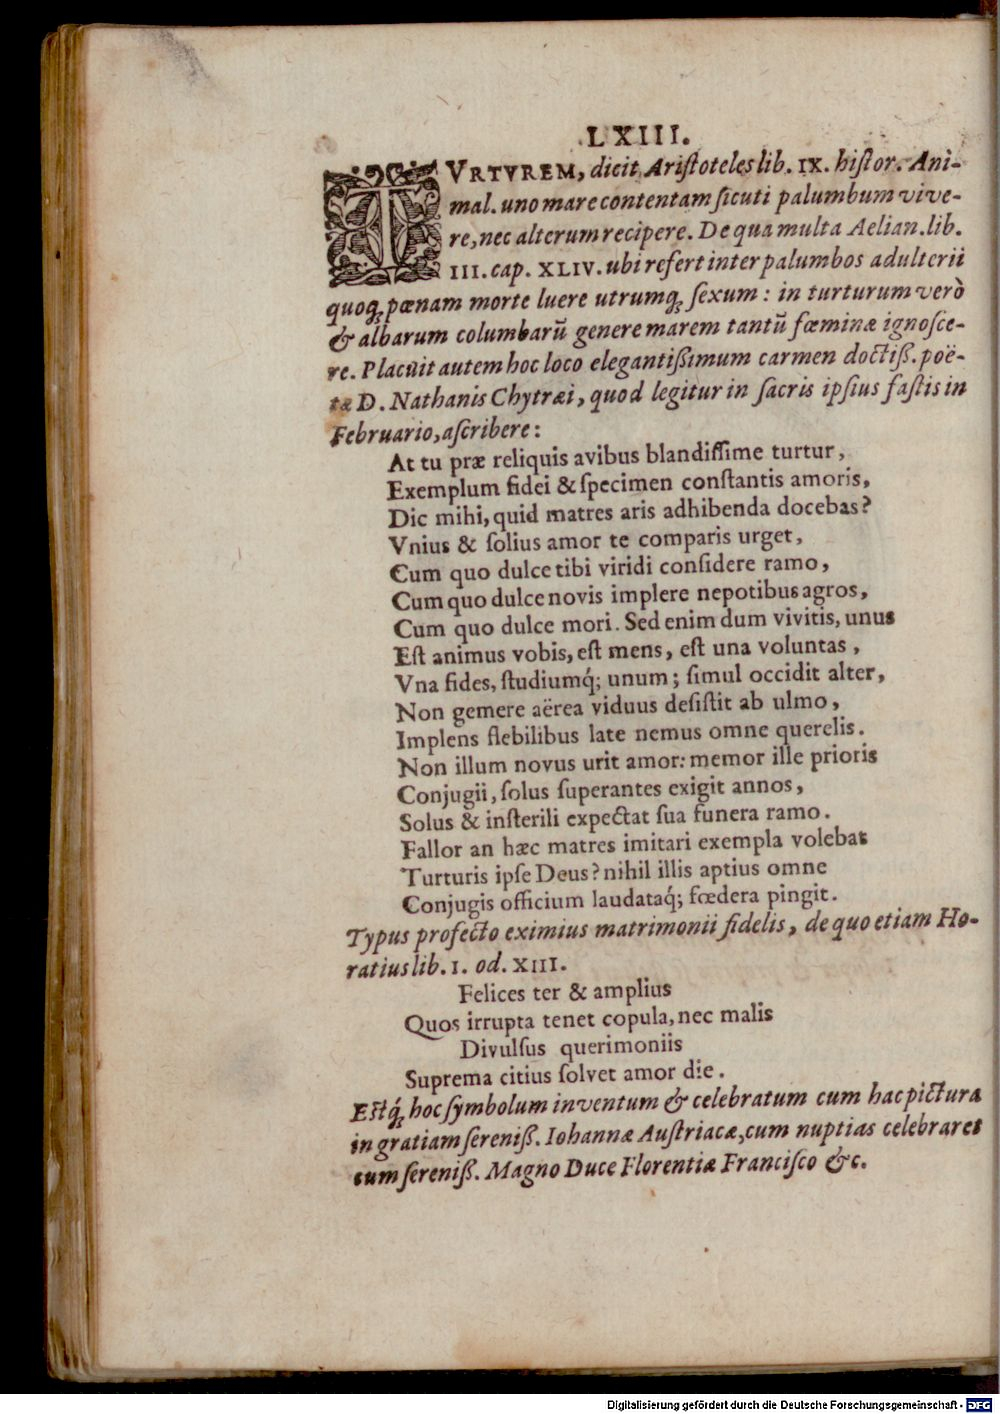 LXIII.
TVRTVREM, dicit Ariſtoteles lib. IX. hiſtor. Ani-
mal. uno mare contentam ſicuti palumbum vive-
re, nec alterum recipere. De qua multa Aelian. lib.
III. cap. XLIV. ubi refert inter palumbos adulterii
quoq; pœnam morte luere utrumq; ſexum: in turturum verò
& albarum columbarũ genere marem tantũ fœminæ ignoſce-
re. Placuit autem hoc loco elegantißimum carmen doctiß. poë-
tæ D. Nathanis Chytræi, quod legitur in ſacris ipſius faſtis in
Februario, aſcribere:
At tu præ reliquis avibus blandiſſime turtur,
Exemplum fidei & ſpecimen conſtantis amoris,
Dic mihi, quid matres aris adhibenda docebas?
Vnius & ſolius amor te comparis urget,
Cum quo dulce tibi viridi conſidere ramo,
Cum quo dulce novis implere nepotibus agros,
Cum quo dulce mori. Sed enim dum vivitis, unus
Eſt animus vobis, eſt mens, eſt una voluntas,
Vna fides, ſtudiumq́; unum; ſimul occidit alter,
Non gemere aërea viduus deſiſtit ab ulmo,
Implens flebilibus late nemus omne querelis.
Non illum novus urit amor: memor ille prioris
Conjugii, ſolus ſuperantes exigit annos,
Solus & inſterili expectat ſua funera ramo.
Fallor an hæc matres imitari exempla volebat
Turturis ipſe Deus? nihil illis aptius omne
Conjugis officium laudataq́; fœdera pingit.
Typus profecto eximius matrimonii fidelis, de quo etiam Ho-
ratius lib. I. od. XIII.
Felices ter & amplius
Quos irrupta tenet copula, nec malis
Divulſus querimoniis
Suprema citius ſolvet amor die.
Eſtq́; hoc ſymbolum inventum & celebratum cum hac pictura
in gratiam ſereniß. Iohannæ Auſtriacæ, cum nuptias celebraret
cum ſereniß. Magno Duce Florentiæ Franciſco &c.
Digitalisierung gefördert durch die Deutsche Forschungsgemeinschaft - DFG